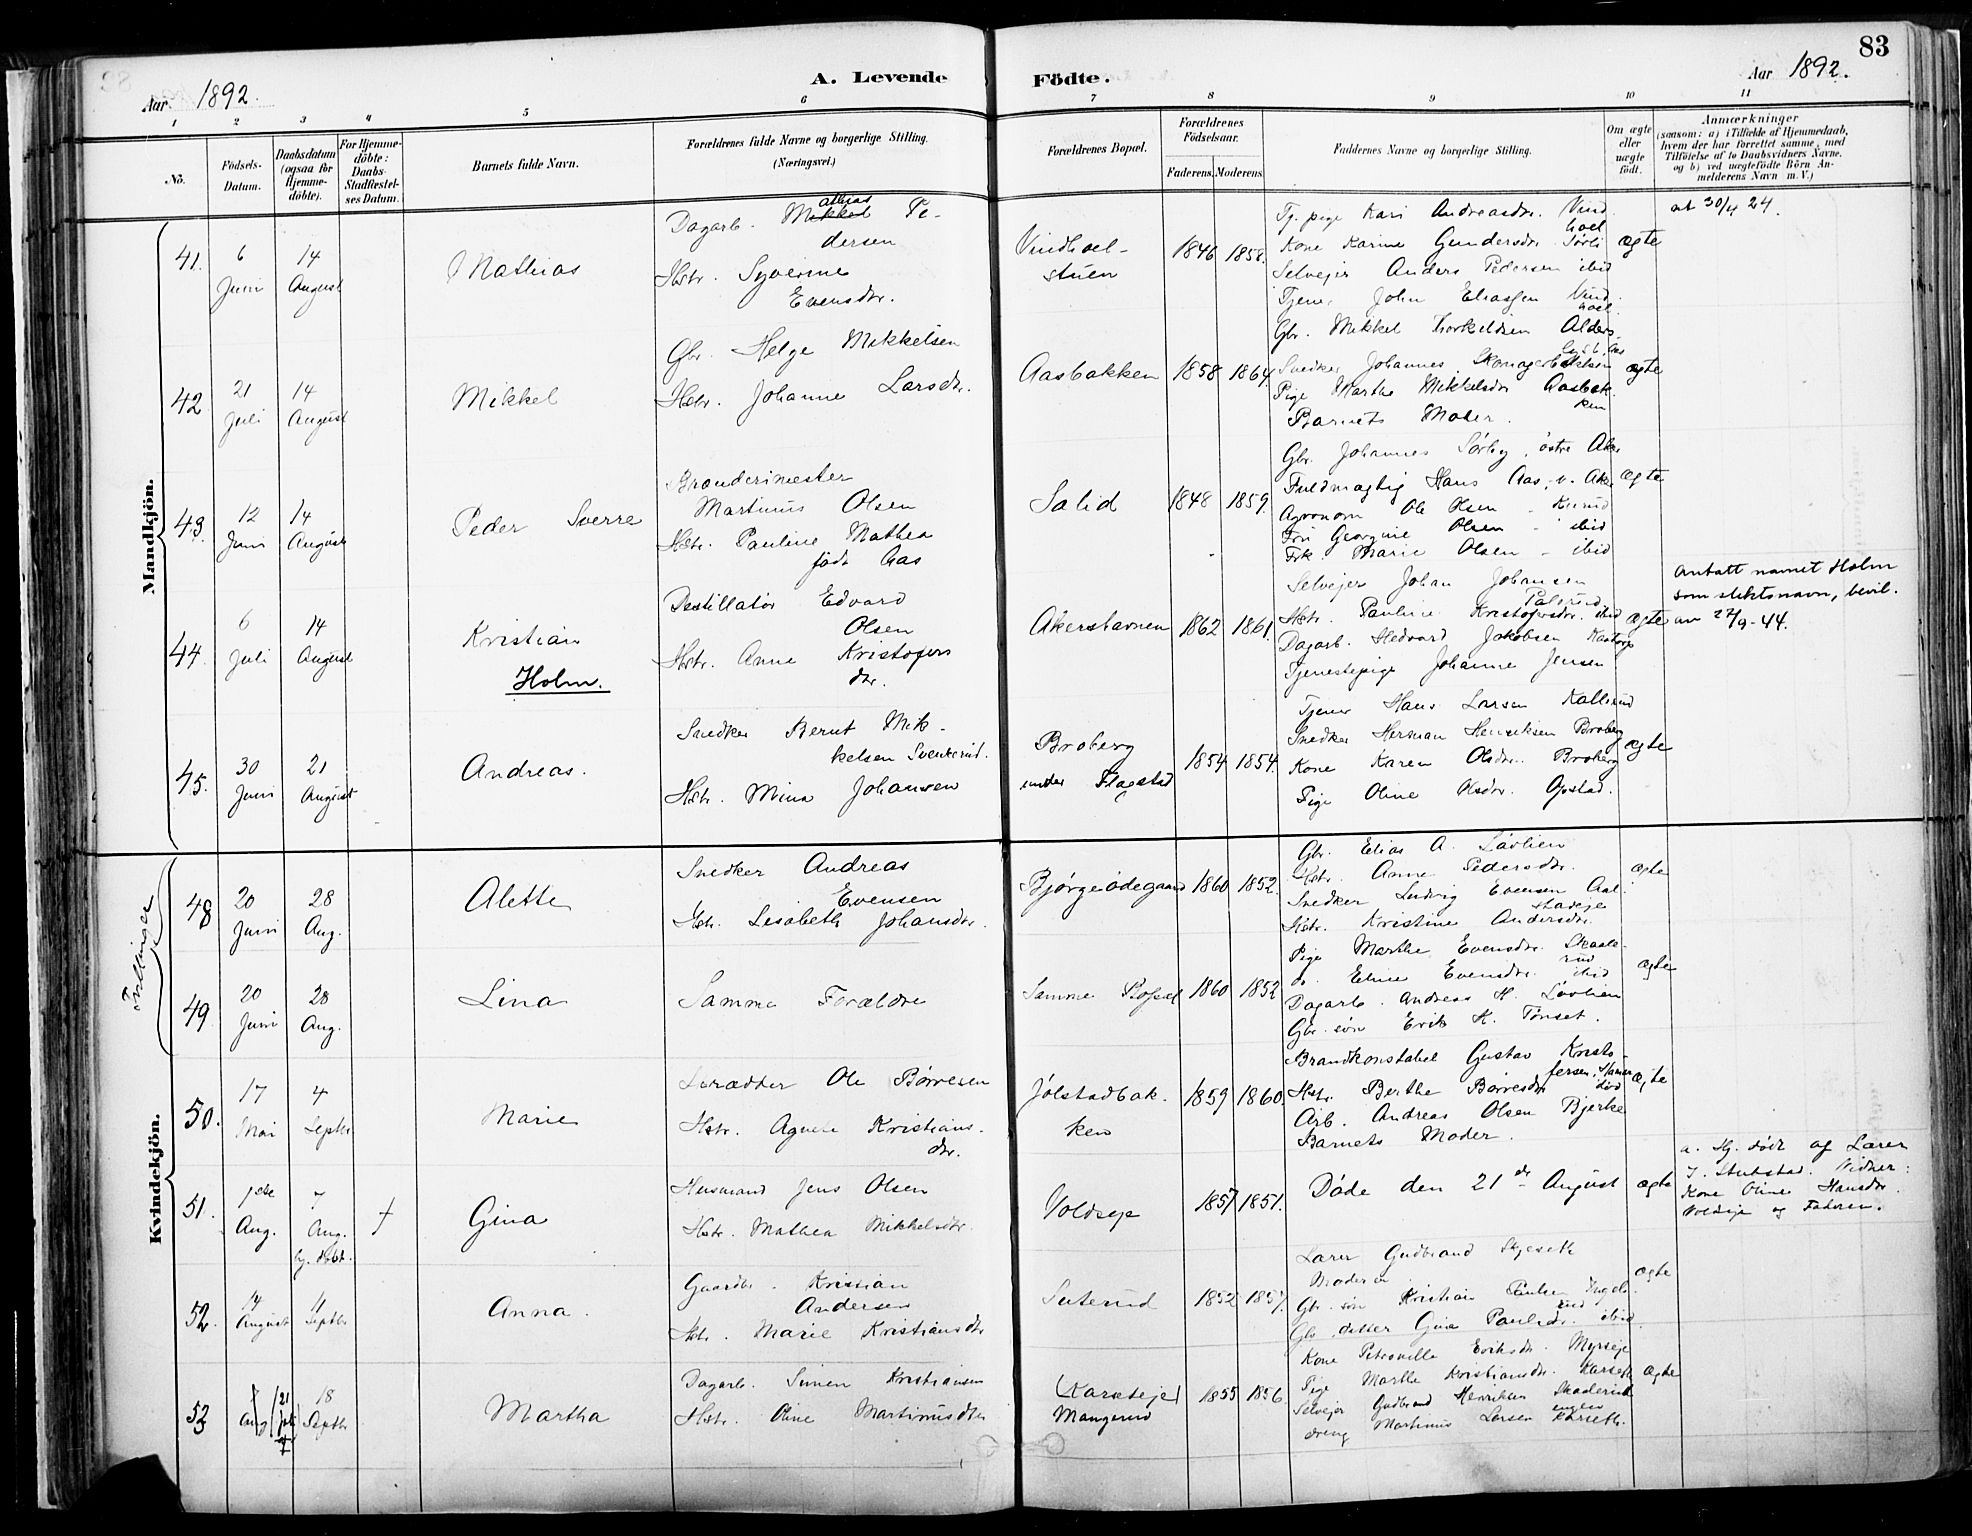 83
Aar 1892.
A. Levende Födte.
Aar 1892.
1 2 3 4 5 6 7 8 9 10 11
No.
Födsels-Datum.
Daabsdatum (ogsaa for Hjemme-döbte).
For Hjemme-döbte: Daabs-Stadfæstel-ses Datum.
Barnets fulde Navn.
Forældrenes fulde Navne og borgerlige Stilling.
(Næringsvei.)
Forældrenes Bopæl.
Forældrenes Födselsaar.
Faderens. Moderens.
Faddernes Navne og borgerlige Stilling.
Om ægte eller uægte födt.
Anmærkninger
(saasom: a) i Tilfælde af Hjemmedaab,
hvem der har forrettet samme, med
Tilföielse af to Daabsvidners Navne.
og b) ved uægtefödte Börn An-
melderens Navn m. V.)
Mandkjön.
41. 6 Juni 14 August
Mathias
Dagarb. Mathias Pe-
dersen
Hstr. Syverine
Evensdr.
Vindhoel-
stuen
1846 1858.
Tj. pige Kari Andreasdr. Vind
hoel
Kone Karine Gundersdr. Sørli
Selvejer Anders Pedersen ibid
Tjener John Eliassen Vind
hoel
ægte
at 30/4 24.
42 21 Juli 14 August
Mikkel
Gbr. Helge Mikkelsen
Hstr. Johanne Larsdr.
Aasbakken
1858 1864.
Gbr. Mikkel Torkildsen Alders
Snedker Johannes
Pige Marthe Mikkelsdr Aasbak-
ken
Barnets Moder.
ægte
43. 12 Juni 14 August
Peder Sverre
Brænderimester
Martinus Olsen
Hstr. Pauline Mathea
født Aas
Salid
1848 1859.
Gbr. Johannes Sørby, østre Aker
Fuldmægtig Hans Aas, v. Aker
Agronom Ole Olsen
Fru Georgine Olsen - ibid
Frk. Marie Olsen - ibid
ægte
44. 6 Juli 14 August
Kristian
Holm.
Destillatør Edvard
Olsen
Hstr. Anne Kristofers
dr.
Akershavnen
1862 1861.
Selvejer Johan Johansen
Hstr. Pauline Kristofersdr. ibid
Dagarb. Hedvard Jakobsen
Tjenestepige Johanne Jensen
ægte
Antatt navnet Holm
som slektsnavn, bevil.
av 27/9-44.
45. 30 Juni 21 August
Andreas.
Snedker Bernt Mik-
kelsen Svenkerud.
Hstr. Mina Johansen
Broberg
under Flagstad
1854 1854.
Tjener Hans Larsen Kallerud
Snedker Herman Henriksen Broberg
Kone Karen Olsdr. Broberg
Pige Oline Olsdr. Opstad.
ægte
Kvindekjön.
Tvillinger
48 20 Juni 28 Aug.
Alette
Snedker Andreas
Evensen
Hstr. Lisabeth Johansdr.
Bjørgeødegaard
1860 1852.
Gbr. Elias A. Løvlien
Hstr. Anne Pedersdr.
Snedker Ludvig Evensen Aal-
stadeje
Hstr. Kristine Andersdr.
ægte
49. 20 Juni 28 Aug.
Lina
Samme Forældre
Samme Bopæl
1860 1852
Pige Marthe Evensdr. Skaale-
rud
do. Eline Evensdr. ibid
Dagarb. Andreas H. Løvlien
Gbr. søn Erik K. Tønset.
ægte
50. 17 Mai 4 Septbr
Marie
Skrædder Ole Børresen
Hstr. Agnete Kristians-
dr.
Jølstadbak-
ken
1859 1860.
Brandkonstabel Gustav Kristo-
fersen,
Hstr. Berthe Børresdr
Arb. Andreas Olsen Bjerke
Barnets Moder.
ægte
51. 1ste Aug. 7 Aug. hj. døbt. †
Gina
Husmand Jens Olsen
Hstr. Mathea Mikkelsdr.
Voldseje
1857 1851.
Døde den 21de August
ægte
a. Hj. døbt af Lærer
J. Stubstad. Vidner:
Kone Oline Hansdr.
Voldseje og Faderen.
52. 14 August 11 Septbr
Anna.
Gaardbr. Kristian
Andersen
Hstr. Marie Kristiansdr
Seterud
1852 1857.
Lærer Gudbrand Skjeseth
Moderen
Gbr. søn Kristian Paulsen Ingels-
rud
Gbr. datter Gina Paulsdr. ibid.
ægte
53 Aug (21 Juli) 18 Septbr
Martha
Dagarb. Simen Kristiansen
Hstr. Oline Martinusdtr
(Karseteje)
Mangerud
1855 1856.
Kone Petronille Eriksdr. Myrseje
Pige Marthe Kristiansdr. Karseth
Selvejer Gudbrand Henriksen Skaderud
engen
dreng Martinus Larsen Karseth.
ægte